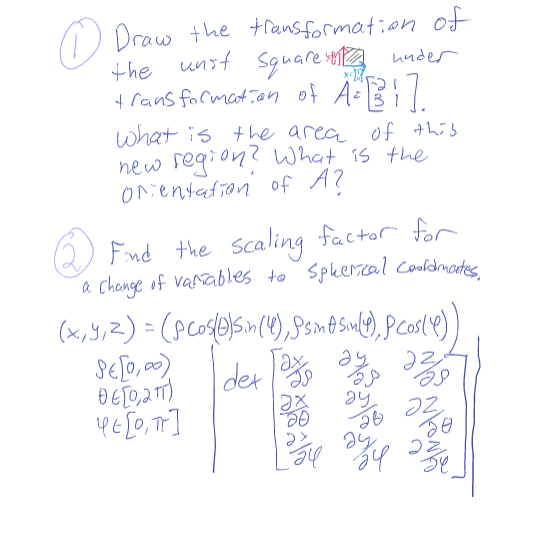 ① Draw the transformation of
the unit square under
transformation of A=[-2 1
3 1].
what is the area of this
new region? What is the
orientation of A?
② Find the scaling factor for
a change of variables to spherical coordinates.
(x,y,z) = (ρcos(θ)sin(φ), ρsinθsin(φ), ρcos(φ))
ρ∈[0,∞)
θ∈[0,2π)
φ∈[0,π]
|det [∂x/∂ρ ∂y/∂ρ ∂z/∂ρ
∂x/∂θ ∂y/∂θ ∂z/∂θ
∂x/∂φ ∂y/∂φ ∂z/∂φ]|